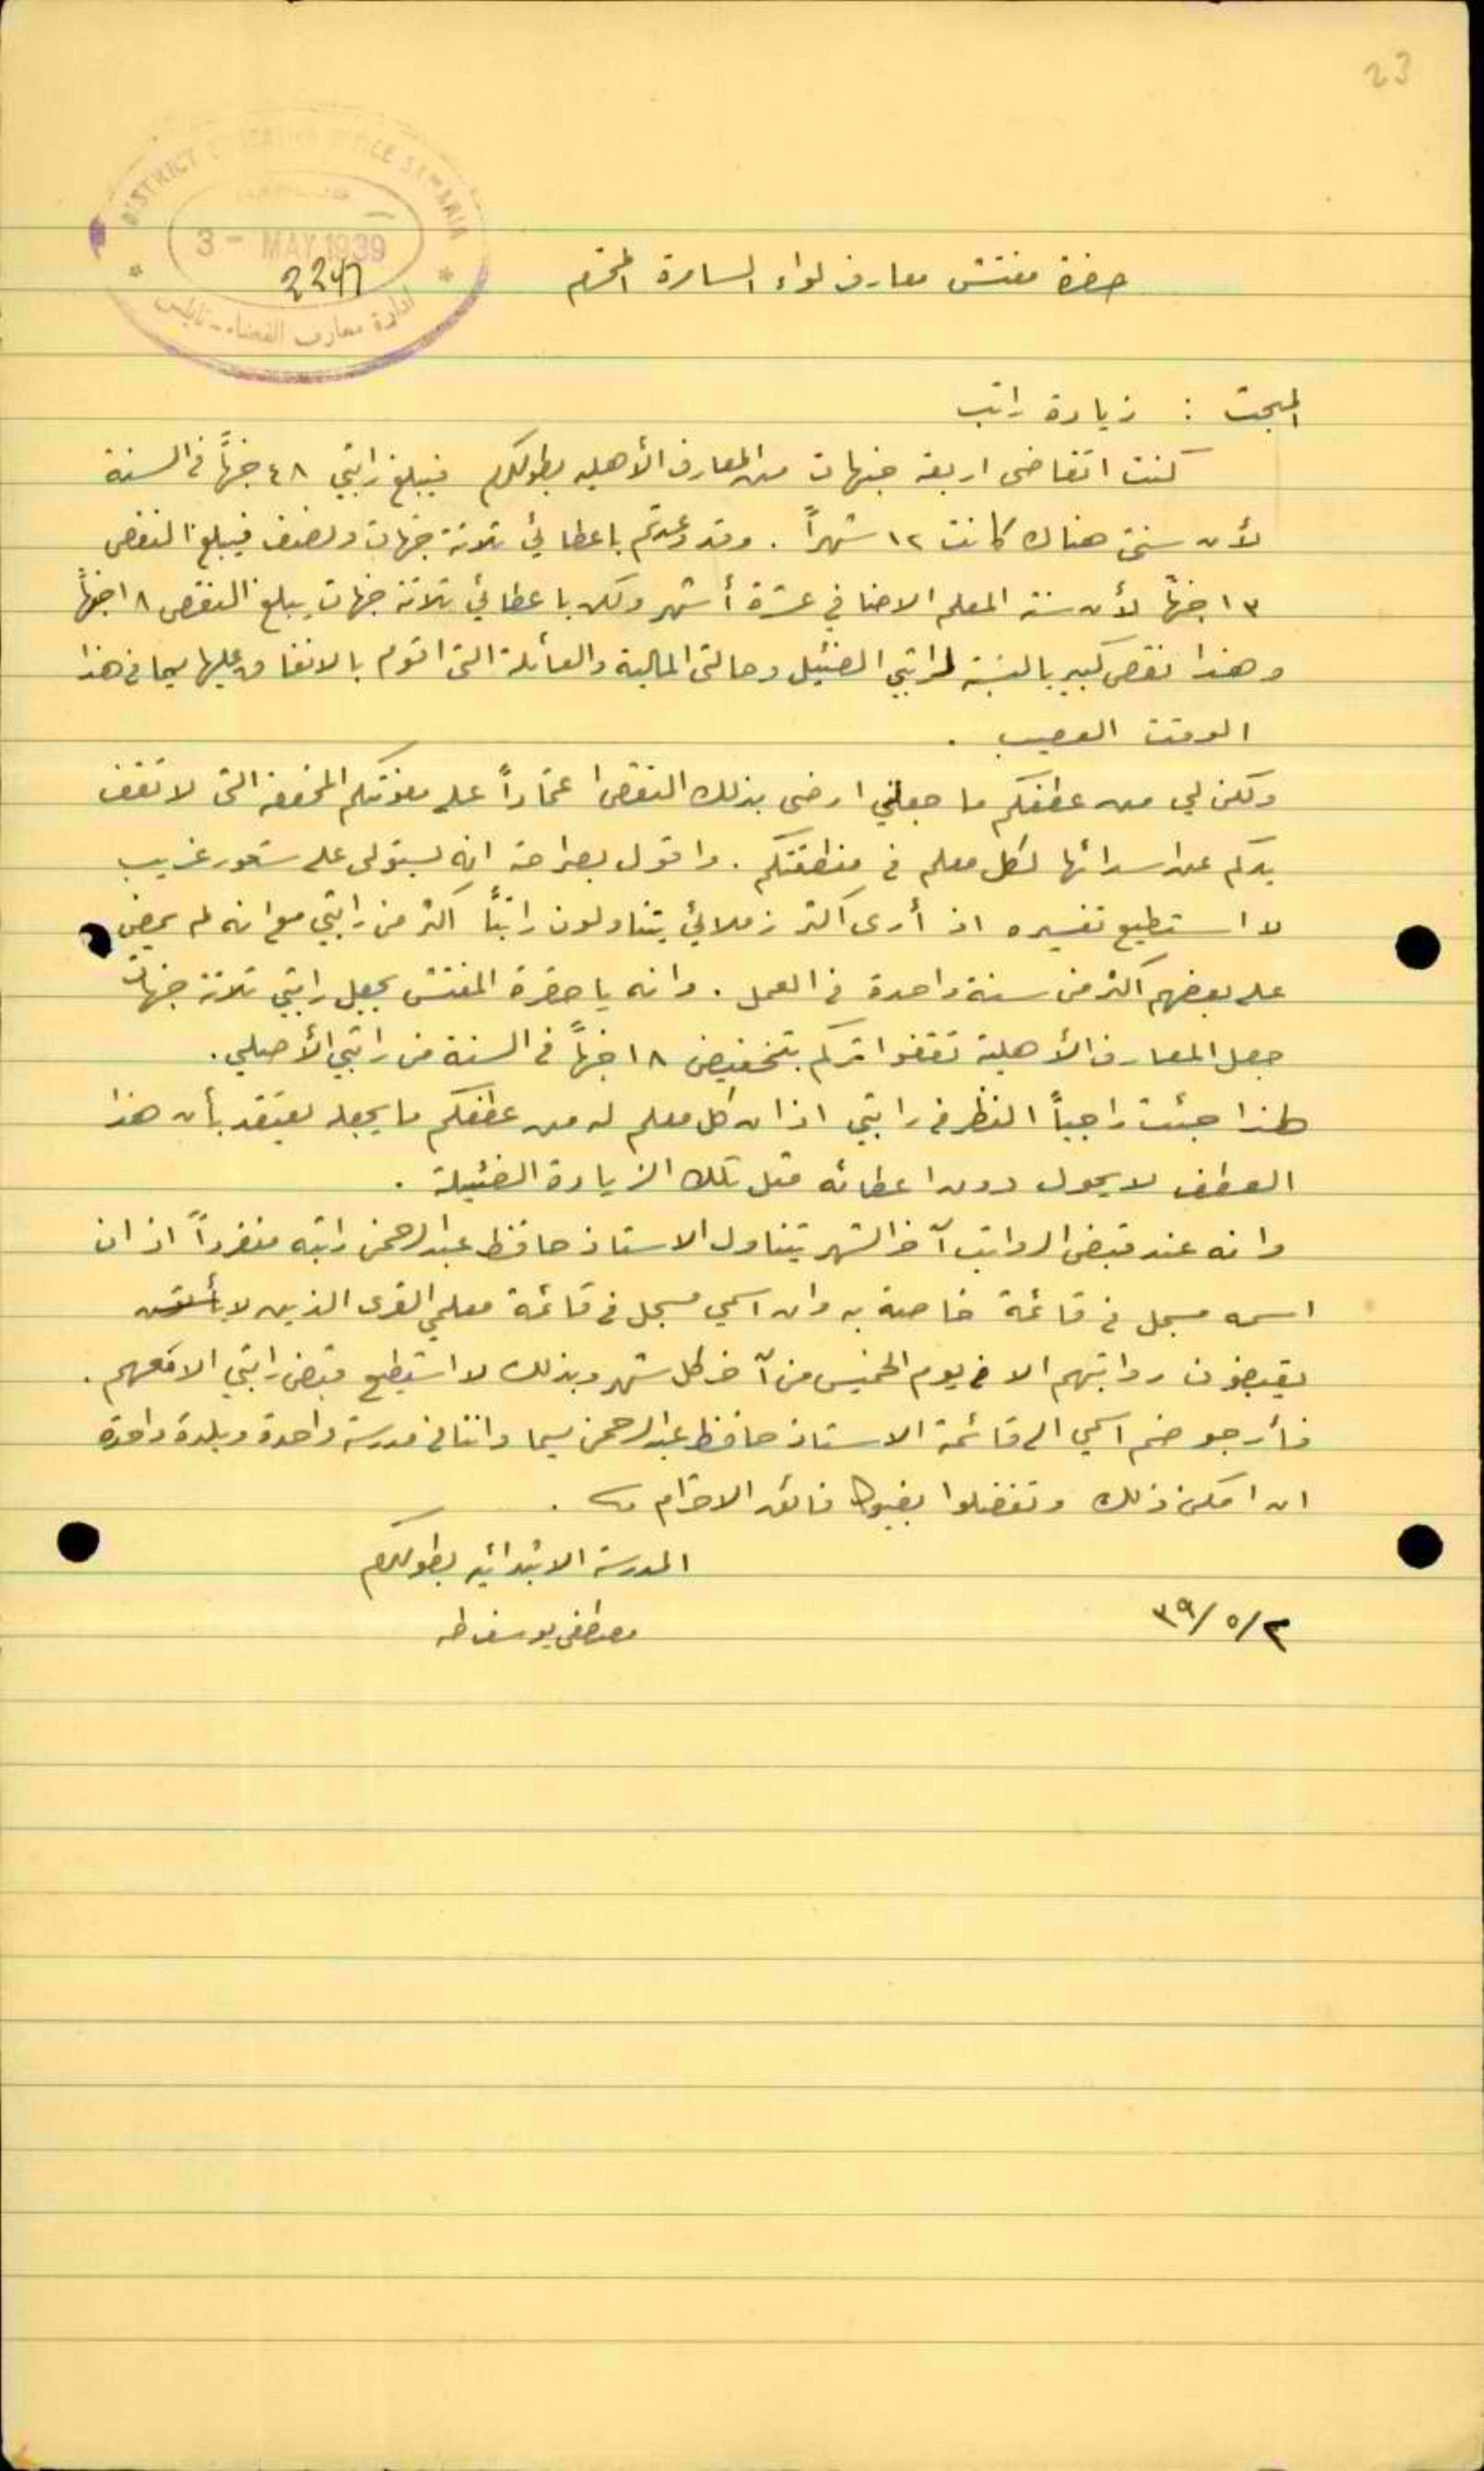 23
DISTRICT EDUCATION OFFICE SAMARIA
3 - MAY 1939
ادارة معارف القضاء - نابلس
حضرة مفتش معارف لواء السامرة المحترم
المبحث : زيادة راتب
كنت اتقاضى اربعة جنيهات من المعارف الأهلية بطولكرم فيبلغ راتبي ٤٨ جنيهاً في السنة
لأن سنتي هناك كانت ١٢ شهراً . وقد وعدتم باعطائي ثلاثة جنيهات ونصف فيبلغ النقص
١٣ جنيهاً لأن سنة المعلم الاضافي عشرة أشهر ولكن باعطائي ثلاثة جنيهات يبلغ النقص ١٨ جنيهاً
وهذا نقص كبير بالنسبة لراتبي الضئيل وحالتي المالية والعائلة التي اقوم بالانفاق عليها سيما في هذا
الوقت العصيب .
ولكن لي من عطفكم ما جعلني ارضى بذلك النقص اعتماداً على معونتكم التي لا تقف
يدكم عن اسدائها لكل معلم في منطقتكم . واقول بصراحة انه يستولى على شعور غريب
لا استطيع تفسيره اذ أرى اكثر زملائي يتناولون راتباً اكثر من راتبي مع انه لم يمض
على بعضهم اكثر من سنة واحدة في العمل . وانه يا حضرة المفتش بجعل راتبي ثلاثة جنيهات
جعل المعارف الأهلية تقفوا اثركم بتخفيض ١٨ جنيهاً في السنة من راتبي الأصلي .
لهذا جئت راجياً النظر في راتبي اذ ان كل معلم له من عطفكم ما يجعله يعتقد بأن هذا
العطف لا يحول دون اعطائه مثل تلك الزيادة الضئيلة .
وانه عند قبض الرواتب آخر الشهر يتناول الاستاذ حافظ عبد الرحمن راتبه منفرداً اذ ان
اسمه مسجل في قائمة خاصة به وان اسمي مسجل في قائمة معلمي القرى الذين لا
يقبضون رواتبهم الا في يوم الخميس من آخر كل شهر وبذلك لا استطيع قبض راتبي الا معهم .
فأرجو ضم اسمي الى قائمة الاستاذ حافظ عبد الرحمن سيما واننا في مدرسة واحدة وبلدة واحدة
ان امكن ذلك وتفضلوا بقبول فائق الاحترام .
المدرسة الابتدائية بطولكرم
٣٩/٥/٢
مصطفى يوسف طه